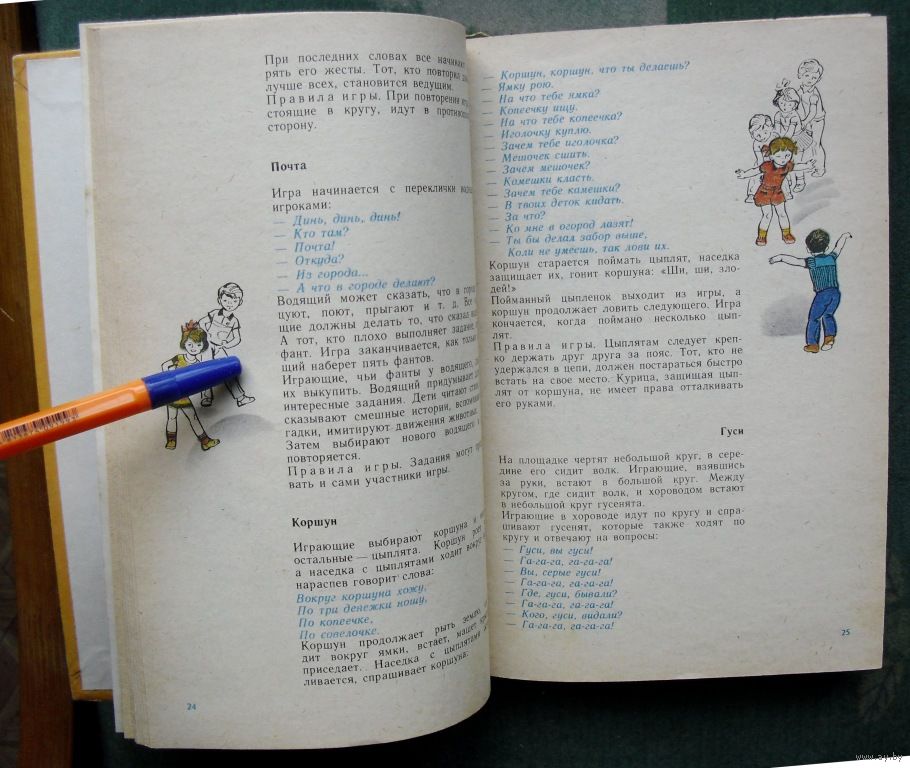 При последних словах все начинают
рять его жесты. Тот, кто повторил
лучше всех, становится ведущим.
Правила игры. При повторении
стоящие в кругу, идут в
сторону.
Почта
Игра начинается с переклички
игроками:
— Динь, динь, динь!
— Кто там?
— Почта!
— Откуда?
— Из города...
— А что в городе делают?
Водящий может сказать, что в
цуют, поют, прыгают и т. д. Все
щие должны делать то, что сказал
А тот, кто плохо выполняет
фант. Игра заканчивается, как только
щий наберет пять фантов.
Играющие, чьи фанты у водящего,
их выкупить. Водящий придумывает
интересные задания. Дети читают
сказывают смешные истории,
гадки, имитируют движения
Затем выбирают нового водящего и
повторяется.
Правила игры. Задания могут
вать и сами участники игры.
Коршун
Играющие выбирают коршуна и
остальные — цыплята. Коршун роет
а наседка с цыплятами ходит вокруг
нараспев говорит слова:
Вокруг коршуна хожу,
По три денежки ношу,
По копеечке,
По совелочке.
Коршун продолжает рыть землю,
дит вокруг ямки, встает, машет
приседает. Наседка с цыплятами
ливается, спрашивает коршуна:
24
— Коршун, коршун, что ты делаешь?
— Ямку рою.
— На что тебе ямка?
— Копеечку ищу.
— На что тебе копеечка?
— Иголочку куплю.
— Зачем тебе иголочка?
— Мешочек сшить.
— Зачем мешочек?
— Камешки класть.
— Зачем тебе камешки?
— В твоих деток кидать.
— За что?
— Ко мне в огород лазят!
— Ты бы делал забор выше,
Коли не умеешь, так лови их.
Коршун старается поймать цыплят, наседка
защищает их, гонит коршуна: «Ши, ши, зло-
дей!»
Пойманный цыпленок выходит из игры, а
коршун продолжает ловить следующего. Игра
кончается, когда поймано несколько цып-
лят.
Правила игры. Цыплятам следует креп-
ко держать друг друга за пояс. Тот, кто не
удержался в цепи, должен постараться быстро
встать на свое место. Курица, защищая цып-
лят от коршуна, не имеет права отталкивать
его руками.
Гуси
На площадке чертят небольшой круг, в сере-
дине его сидит волк. Играющие, взявшись
за руки, встают в большой круг. Между
кругом, где сидит волк, и хороводом встают
в небольшой круг гусенята.
Играющие в хороводе идут по кругу и спра-
шивают гусенят, которые также ходят по
кругу и отвечают на вопросы:
— Гуси, вы гуси!
— Га-га-га, га-га-га!
— Вы, серые гуси!
— Га-га-га, га-га-га!
— Где, гуси, бывали?
— Га-га-га, га-га-га!
— Кого, гуси, видали?
— Га-га-га, га-га-га!
25
www.ay.by